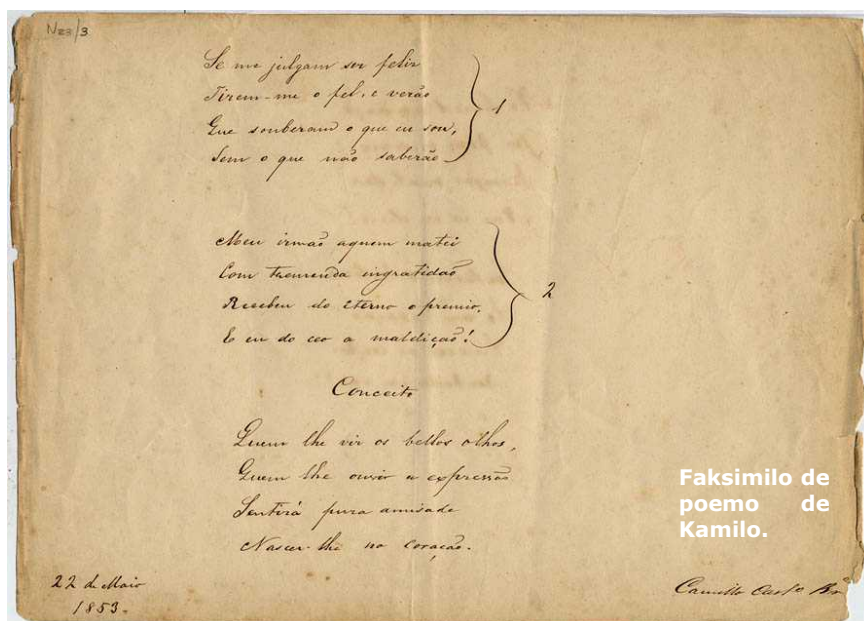 N23/3
Se me julgam ser feliz
Tirem-me o fel, e verão
Que souberam o que eu sou,
Sem o que não saberão
1
Meu irmão aquem matei
Com tremenda ingratidão
Recebeu do eterno o premio,
E eu do ceo a maldição!
2
Conceito
Quem lhe vir os bellos olhos,
Quem lhe ouvir a expressão
Sentirá pura amisade
Nascer-lhe no coração.
Faksimilo de
poemo de
Kamilo.
22 de Maio
1853.
Camillo Castº Brº